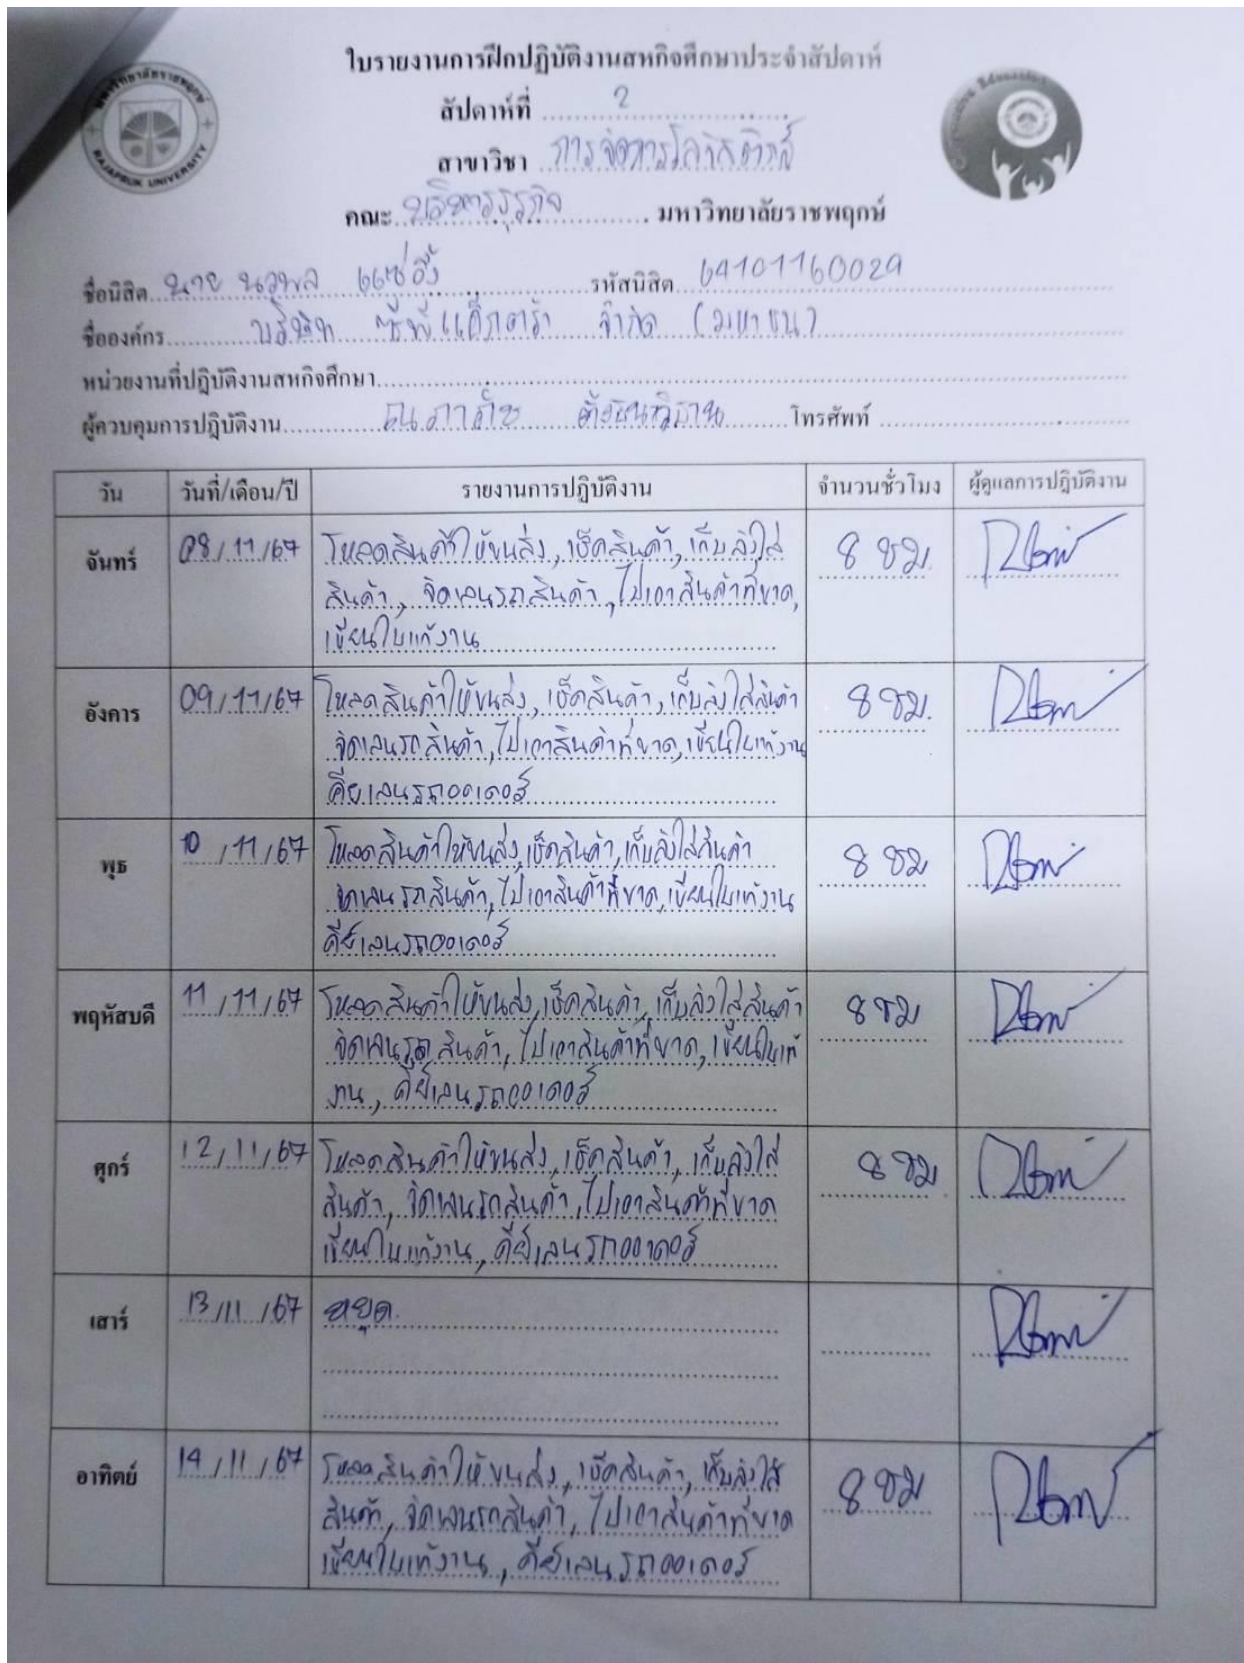 ใบรายงานการฝึกปฏิบัติงานสหกิจศึกษาประจำสัปดาห์
สัปดาห์ที่ 2
สาขาวิชา การจัดการโลจิสติกส์
คณะ บริหารธุรกิจ มหาวิทยาลัยราชพฤกษ์
RAJAPRUK UNIVERSITY
ชื่อนิสิต นาย นวพล แซ่อึ้ง รหัสนิสิต 64101160029
ชื่อองค์กร บริษัท ซีพีแอ็กซ์ตร้า จำกัด (มหาชน)
หน่วยงานที่ปฏิบัติงานสหกิจศึกษา
ผู้ควบคุมการปฏิบัติงาน โทรศัพท์
วัน วันที่/เดือน/ปี รายงานการปฏิบัติงาน จำนวนชั่วโมง ผู้ดูแลการปฏิบัติงาน
จันทร์ 08/11/67 โหลดสินค้าให้ขนส่ง, เช็คสินค้า, เก็บลังใส่ 8 ชม.
สินค้า, จัดเลนรถสินค้า, ไปเอาสินค้าที่ขาด,
เขียนใบแท้งาน
อังคาร 09/11/67 โหลดสินค้าให้ขนส่ง, เช็คสินค้า, เก็บลังใส่สินค้า 8 ชม.
จัดเลนรถสินค้า, ไปเอาสินค้าที่ขาด, เขียนใบแท้งาน
คีย์เลนรถออเดอร์
พุธ 10/11/67 โหลดสินค้าให้ขนส่ง, เช็คสินค้า, เก็บลังใส่สินค้า 8 ชม
จัดเลนรถสินค้า, ไปเอาสินค้าที่ขาด, เขียนใบแท้งาน
คีย์เลนรถออเดอร์
พฤหัสบดี 11/11/67 โหลดสินค้าให้ขนส่ง, เช็คสินค้า, เก็บลังใส่สินค้า 8 ชม
จัดเลนรถสินค้า, ไปเอาสินค้าที่ขาด, เขียนใบแท้
งาน, คีย์เลนรถออเดอร์
ศุกร์ 12/11/67 โหลดสินค้าให้ขนส่ง, เช็คสินค้า, เก็บลังใส่ 8 ชม
สินค้า, จัดเลนรถสินค้า, ไปเอาสินค้าที่ขาด
เขียนใบแท้งาน, คีย์เลนรถออเดอร์
เสาร์ 13/11/67 หยุด
อาทิตย์ 14/11/67 โหลดสินค้าให้ขนส่ง, เช็คสินค้า, เก็บลังใส่ 8 ชม
สินค้า, จัดเลนรถสินค้า, ไปเอาสินค้าที่ขาด
เขียนใบแท้งาน, คีย์เลนรถออเดอร์